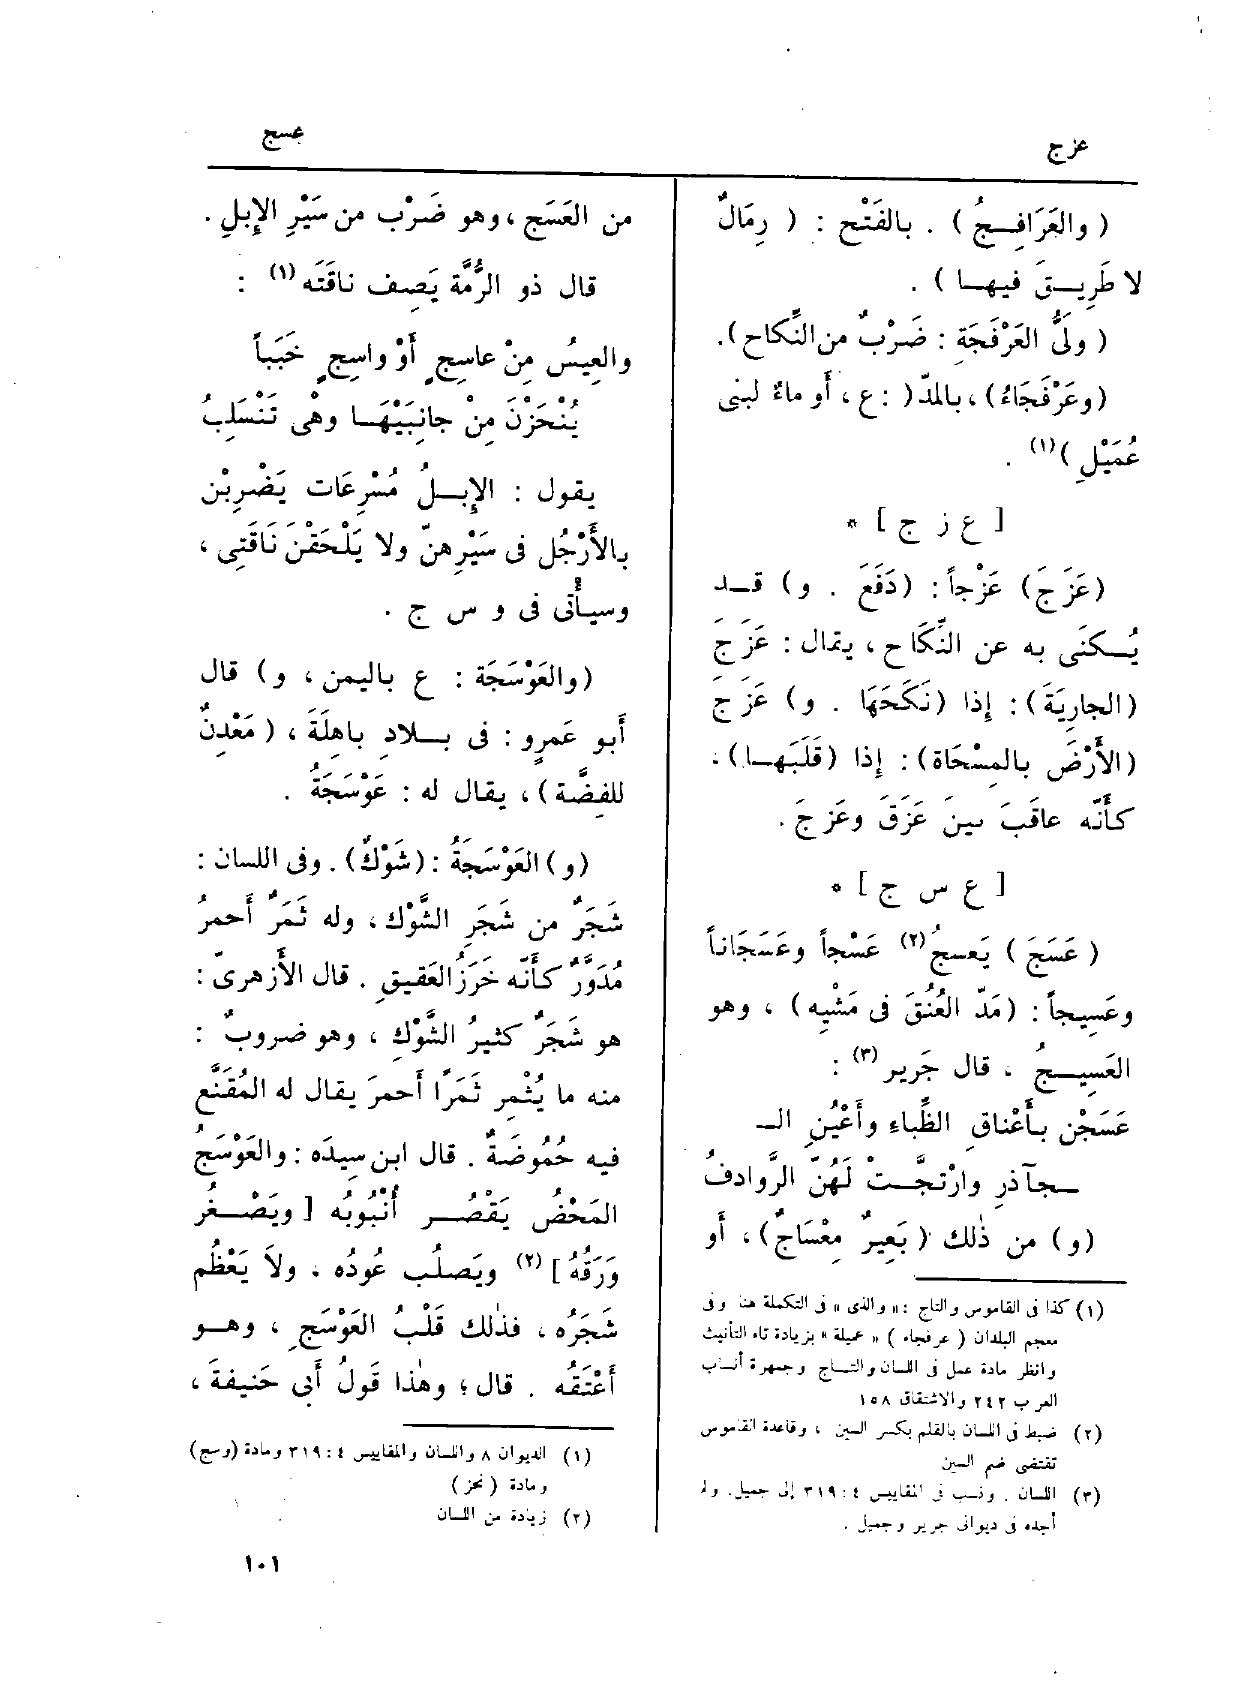 عزج
عسج
(والعَرَافِجُ). بالفَتْح : ( رِمَالٌ
لا طَرِيقَ فيها ) .
( ولَىُّ العَرْفَجَةِ : ضَرْبٌ من النِّكاح).
(وعَرْفَجَاءُ)، بالمدّ( :ع ، أو ماءٌ لبنى
عُمَيْلِ )(١) .
[ ع ز ج ] *
(عَزَجَ) عَزْجاً : (دَفَعَ . و) قد
يُكنَى به عن النِّكَاح ، يقال : عَزَجَ
(الجارِيَةَ) : إذا (نَكَحَهَا . و) عَزَجَ
(الأَرْضَ بالمِسْحَاة) : إذا (قَلَبَها) ،
كأَنّه عاقَبَ بينَ عَزَقَ وعَزجَ .
[ ع س ج ] *
( عَسَجَ ) يَعسجُ(٢) عَسْجاً وعَسَجَاناً
وعَسِيجاً : (مَدّ العُنُقَ فى مَشْيِه ) ، وهو
العَسِيجُ ، قال جَرير(٣) :
عَسَجْن بأَعْناقِ الظِّباءِ وأَعْيُنِ الـ
ـجآذرِ وارْتجَّتْ لَهُنّ الرَّوادفُ
(و) من ذٰلك ( بَعِيرٌ مِعْسَاجٌ ) ، أَو
(١) كذا فى القاموس والتاج : « والذى » فى التكملة هنا وفى
معجم البلدان ( عرفجاء ) « عميلة » بزيادة تاء التأنيث
وانظر مادة عمل فى اللسان والتاج وجمهرة أنساب
العرب ٢٤٢ والاشتقاق ١٥٨
(٢) ضبط فى اللسان بالقلم بكسر السين ، وقاعدة القاموس
تقتضى ضم السين
(٣) اللسان . ونسب فى المقاييس ٤ : ٣١٩ إلى جميل. ولم
أجده فى ديوانى جرير وجميل .
من العَسَج ، وهو ضَرْب من سَيْرِ الإِبلِ .
قال ذو الرُّمَّة يَصِف ناقَتَه(١) :
والعِيسُ مِنْ عاسِجٍ أَوْ واسِجٍ خَبَباً
يُنْحَزْنَ مِنْ جانِبَيْهَا وهْى تَنْسَلِبُ
يقول : الإِبلُ مُسْرِعَات يَضْرِبْن
بالأَرْجُل فى سَيْرِهنّ ولا يَلْحَقْنَ نَاقَتِى ،
وسيأْتى فى و س ج .
(والعَوْسَجَة : ع باليمن ، و) قال
أَبو عَمرٍو : فى بلادِ باهِلَةَ ، ( مَعْدِنٌ
للفِضَّة ) ، يقال له : عَوْسَجَةُ .
(و) العَوْسَجَةُ : (شَوْكٌ) . وفى اللسان :
شَجَرٌ من شَجَرِ الشَّوْك ، وله ثَمَرٌ أَحمرُ
مُدَوَّرٌ كأَنّه خَرَزُ العَقيقِ . قال الأَزهرىّ :
هو شَجَرٌ كثيرُ الشَّوْكِ ، وهو ضروبٌ :
منه ما يُثْمِر ثَمَرًا أَحمرَ يقال له المُقَنَّع
فيه حُمُوضَةٌ . قال ابن سِيدَه : والعَوْسَجُ
المَحْضُ يَقْصُر أُنْبُوبُه [ ويَصْغُر
وَرَقُهُ ] (٢) ويَصلُب عُودُه ، ولاَ يَعْظُم
شَجَرُه ، فذٰلك قَلْبُ العَوْسَجِ ، وهو
أَعْتَقُه . قال ؛ وهٰذا قَولُ أَبى حَنيفةَ ،
(١) الديوان ٨ واللسان والمقاييس ٤ : ٣١٩ ومادة (وسج)
ومادة ( نحز )
(٢) زيادة من اللسان
١٠١